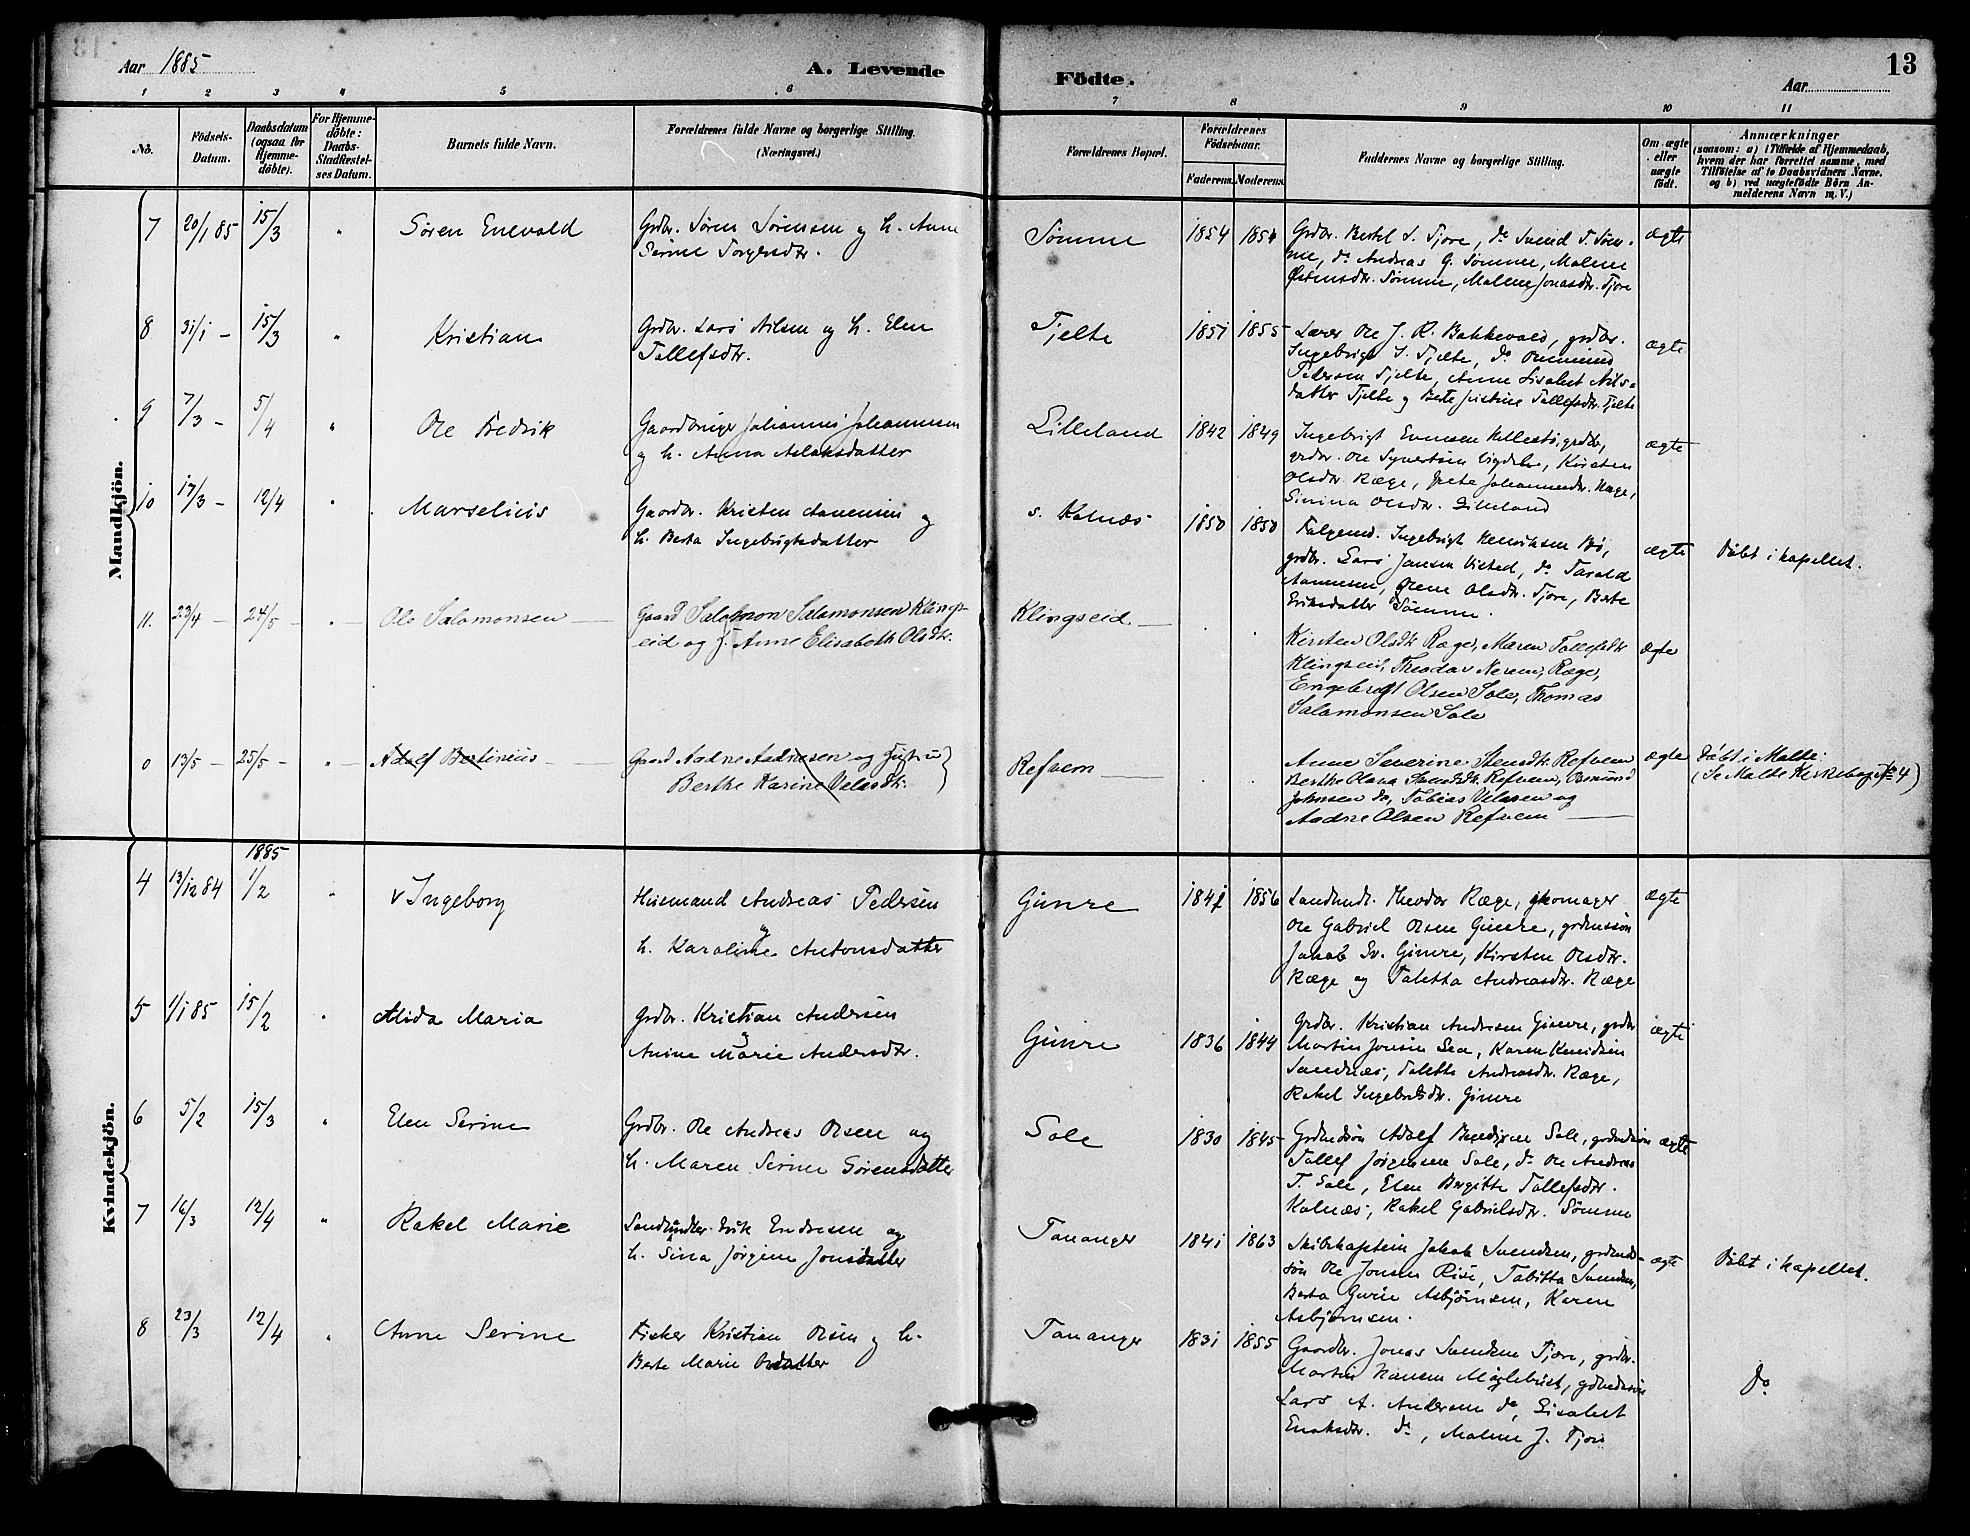 Aar 1885
A. Levende
Födte.
Aar
13
1 2 3 4 5 6 7 8 9 10 11
No.
Födsels-
Datum.
Daabsdatum
(ogsaa for
Hjemme-
döbte).
For Hjemme-
döbte:
Daabs-
Stadfæstel-
ses Datum.
Barnets fulde Navn.
Forældrenes fulde Navne og borgerlige Stilling.
(Næringsvei.)
Forældrenes Bopæl.
Forældrenes
Födselsaar.
Faderens. Moderens.
Faddernes Navne og borgerlige Stilling.
Om ægte
eller
uægte
født.
Anmærkninger
(saasom: a) i Tilfælde af Hjemmedaab,
hvem der har forrettet samme, med
Tilföielse af to Daabsvidners Navne.
og b) ved uægtefödte Börn An-
melderens Navn m. V.)
Mandkjön.
7 20/1 85 15/3 " Sören Enevald
Grdbr. Sören Sörensen og h. Anne
Serine Torgersdtr.
Sömme 1854 1854
Grdbr. Bertel S. Tjore, do Svend T. Söm-
me, do Andreas G. Sömme, Malene
Östensdtr. Sömme, Malene Jonasdtr. Tjore
ægte
8 31/1 - 15/3 " Kristian
Grdbr. Lars Nilsen og h. Elen
Tollefsdtr.
Tjelte 1851 1855
Lærer Ole J. R. Bakkevold, grdbr.
Ingebrigt S. Tjelte, do
Pedersen Tjelte, Anne Lisabet Nils-
datter Tjelte og Berte Justine Tollefsdtr. Tjelte
ægte
9 7/3 - 5/4 " Ole Fredrik
Gaardbruger Johannes Johannesen
og h. Anna Aslaksdatter
Lilleland 1842 1849
Ingebrigt Evensen grdbr,
grdbr. Ole Syvertsen Vigdel, Kirsten
Olsdtr. Ræge, Grete Johannesdtr. Ræge,
Sinina Olsdtr. Lilleland
ægte
10 17/3 - 12/4 " Marselius
Gaardbr. Kristen Aanensen og
h. Berta Ingebrigtsdatter
s. Kolnæs 1850 1850
Falgemd. Ingebrigt Henriksen Bö,
grdbr. Lars Jansen Visted, do Tarald
Aanensen, Olsdtr. Tjore, Berte
Eriksdatter Sömme.
ægte Döbt i kapellet.
11. 23/4 - 24/5 - " - Ole Salomonsen
Gaard Salomon Salamonsen Klings-
eid og h. Anne Elisabeth Olsdtr.
Klingseid . .
Kirsten Olsdtr Ræge, Maren Tollefsdtr
Klingseid, Theodor Ræge,
Engebregt Olsen Sole, Thomas
Salamonsen Sole
ægte
0 13/5 - 25/5 - " - Adolf Bertinius
Gaard Aadne Aadnesen og Hustru
Berthe Karine Velasdtr.
Refsem . .
Anne Severine Stensdtr. Refsem
Berthe Olava Refsem,
Johnsen do, Tobias Velasen og
Aadne Olsen Refsem
ægte Döbt i Malte.
(Se Malte Kirkebog No 4)
Kvindekjön.
4 13/12 84 1885 1/2 " v Ingeborg
Husmand Andreas Pedersen
og
h. Karoline Antonsdatter
Gimre 1841 1856
Landhndl. Theodor Ræge, skomager
Ole Gabriel Olsen Gimre, grdmssön
Jakob Sv. Gimre, Kirsten Olsdtr.
Ræge og Taletta Andreasdtr. Ræge
ægte
5 1/1 85 15/2 " Alida Maria
Grdbr. Kristian Andersen
og
Anine Marie Andersdtr.
Gimre 1836 1844
Grdbr. Kristian Andresen Gimre, grdbr
Martin Jonsen Sea, Karen Knudsen
Sandnæs, Taletta Andreasdtr. Ræge,
Rakel Ingebretsdtr. Gimre
ægte
6 5/2 15/3 " Elen Serine
Grdbr. Ole Andreas Olsen og
h. Maren Serine Sörensdatter
Sole 1830 1845
Grdmdsön Adolf Sole, grdmdsön
Tollef Jörgensen Sole, do Ole Andreas
T. Sole, Elen Bergitte Tollefsdtr.
Kolnæs, Rakel Gabrielsdtr. Sömme
ægte
7 16/3 12/4 " Rakel Marie
Landhndler. Erik Endresen og
h. Sina Jörgine Jonsdatter
Tananger 1841 1863
Skibskaptein Jakob Svendsen, grdmds-
sön Ole Jonsen Risö, Tabitta Svendsen,
Berta Gurie Asbjörnsen, Karen
Asbjörnsen.
ægte Döbt i kapellet.
8 23/3 12/4 " Anne Serine
Fisker Kristian Olsen og h.
Berte Marie Olsdatter
Tananger 1831 1855
Gaardbr. Jonas Svendsen Tjore, grdbr.
Martin Hansen Myglebust, grdmdsön
Lars A. Andersen do, Lisabet
Enoksdtr. do, Malene J. Tjore
Do